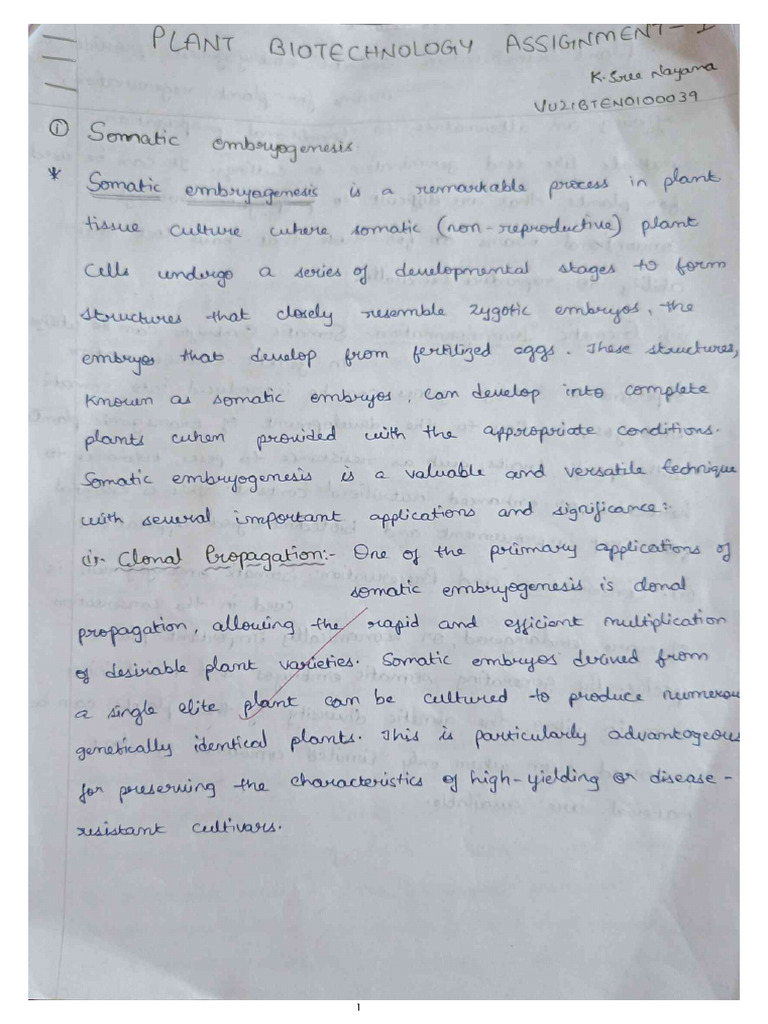 PLANT BIOTECHNOLOGY ASSIGNMENT - I
K. Sree Nayama
VU21BTEN0100039
① Somatic embryogenesis.
* Somatic embryogenesis is a remarkable process in plant
tissue culture where somatic (non-reproductive) plant
cells undergo a series of developmental stages to form
structures that closely resemble zygotic embryos, the
embryos that develop from fertilized eggs. These structures,
known as somatic embryos, can develop into complete
plants when provided with the appropriate conditions.
Somatic embryogenesis is a valuable and versatile technique
with several important applications and significance:-
(i)- Clonal Propagation:- One of the primary applications of
somatic embryogenesis is clonal
propagation, allowing the rapid and efficient multiplication
of desirable plant varieties. Somatic embryos derived from
a single elite plant can be cultured to produce numerous
genetically identical plants. This is particularly advantageous
for preserving the characteristics of high-yielding or disease-
resistant cultivars.
1